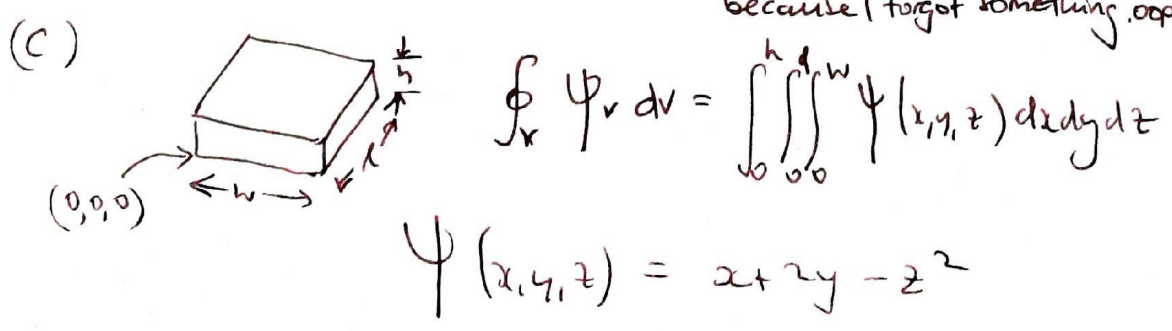 because I forgot something, oop
(c)
h
l
w
(0,0,0)
∮_v ψ_v dv = ∫_0^h ∫_0^l ∫_0^w ψ(x,y,z) dxdydz
ψ(x,y,z) = x+2y-z²